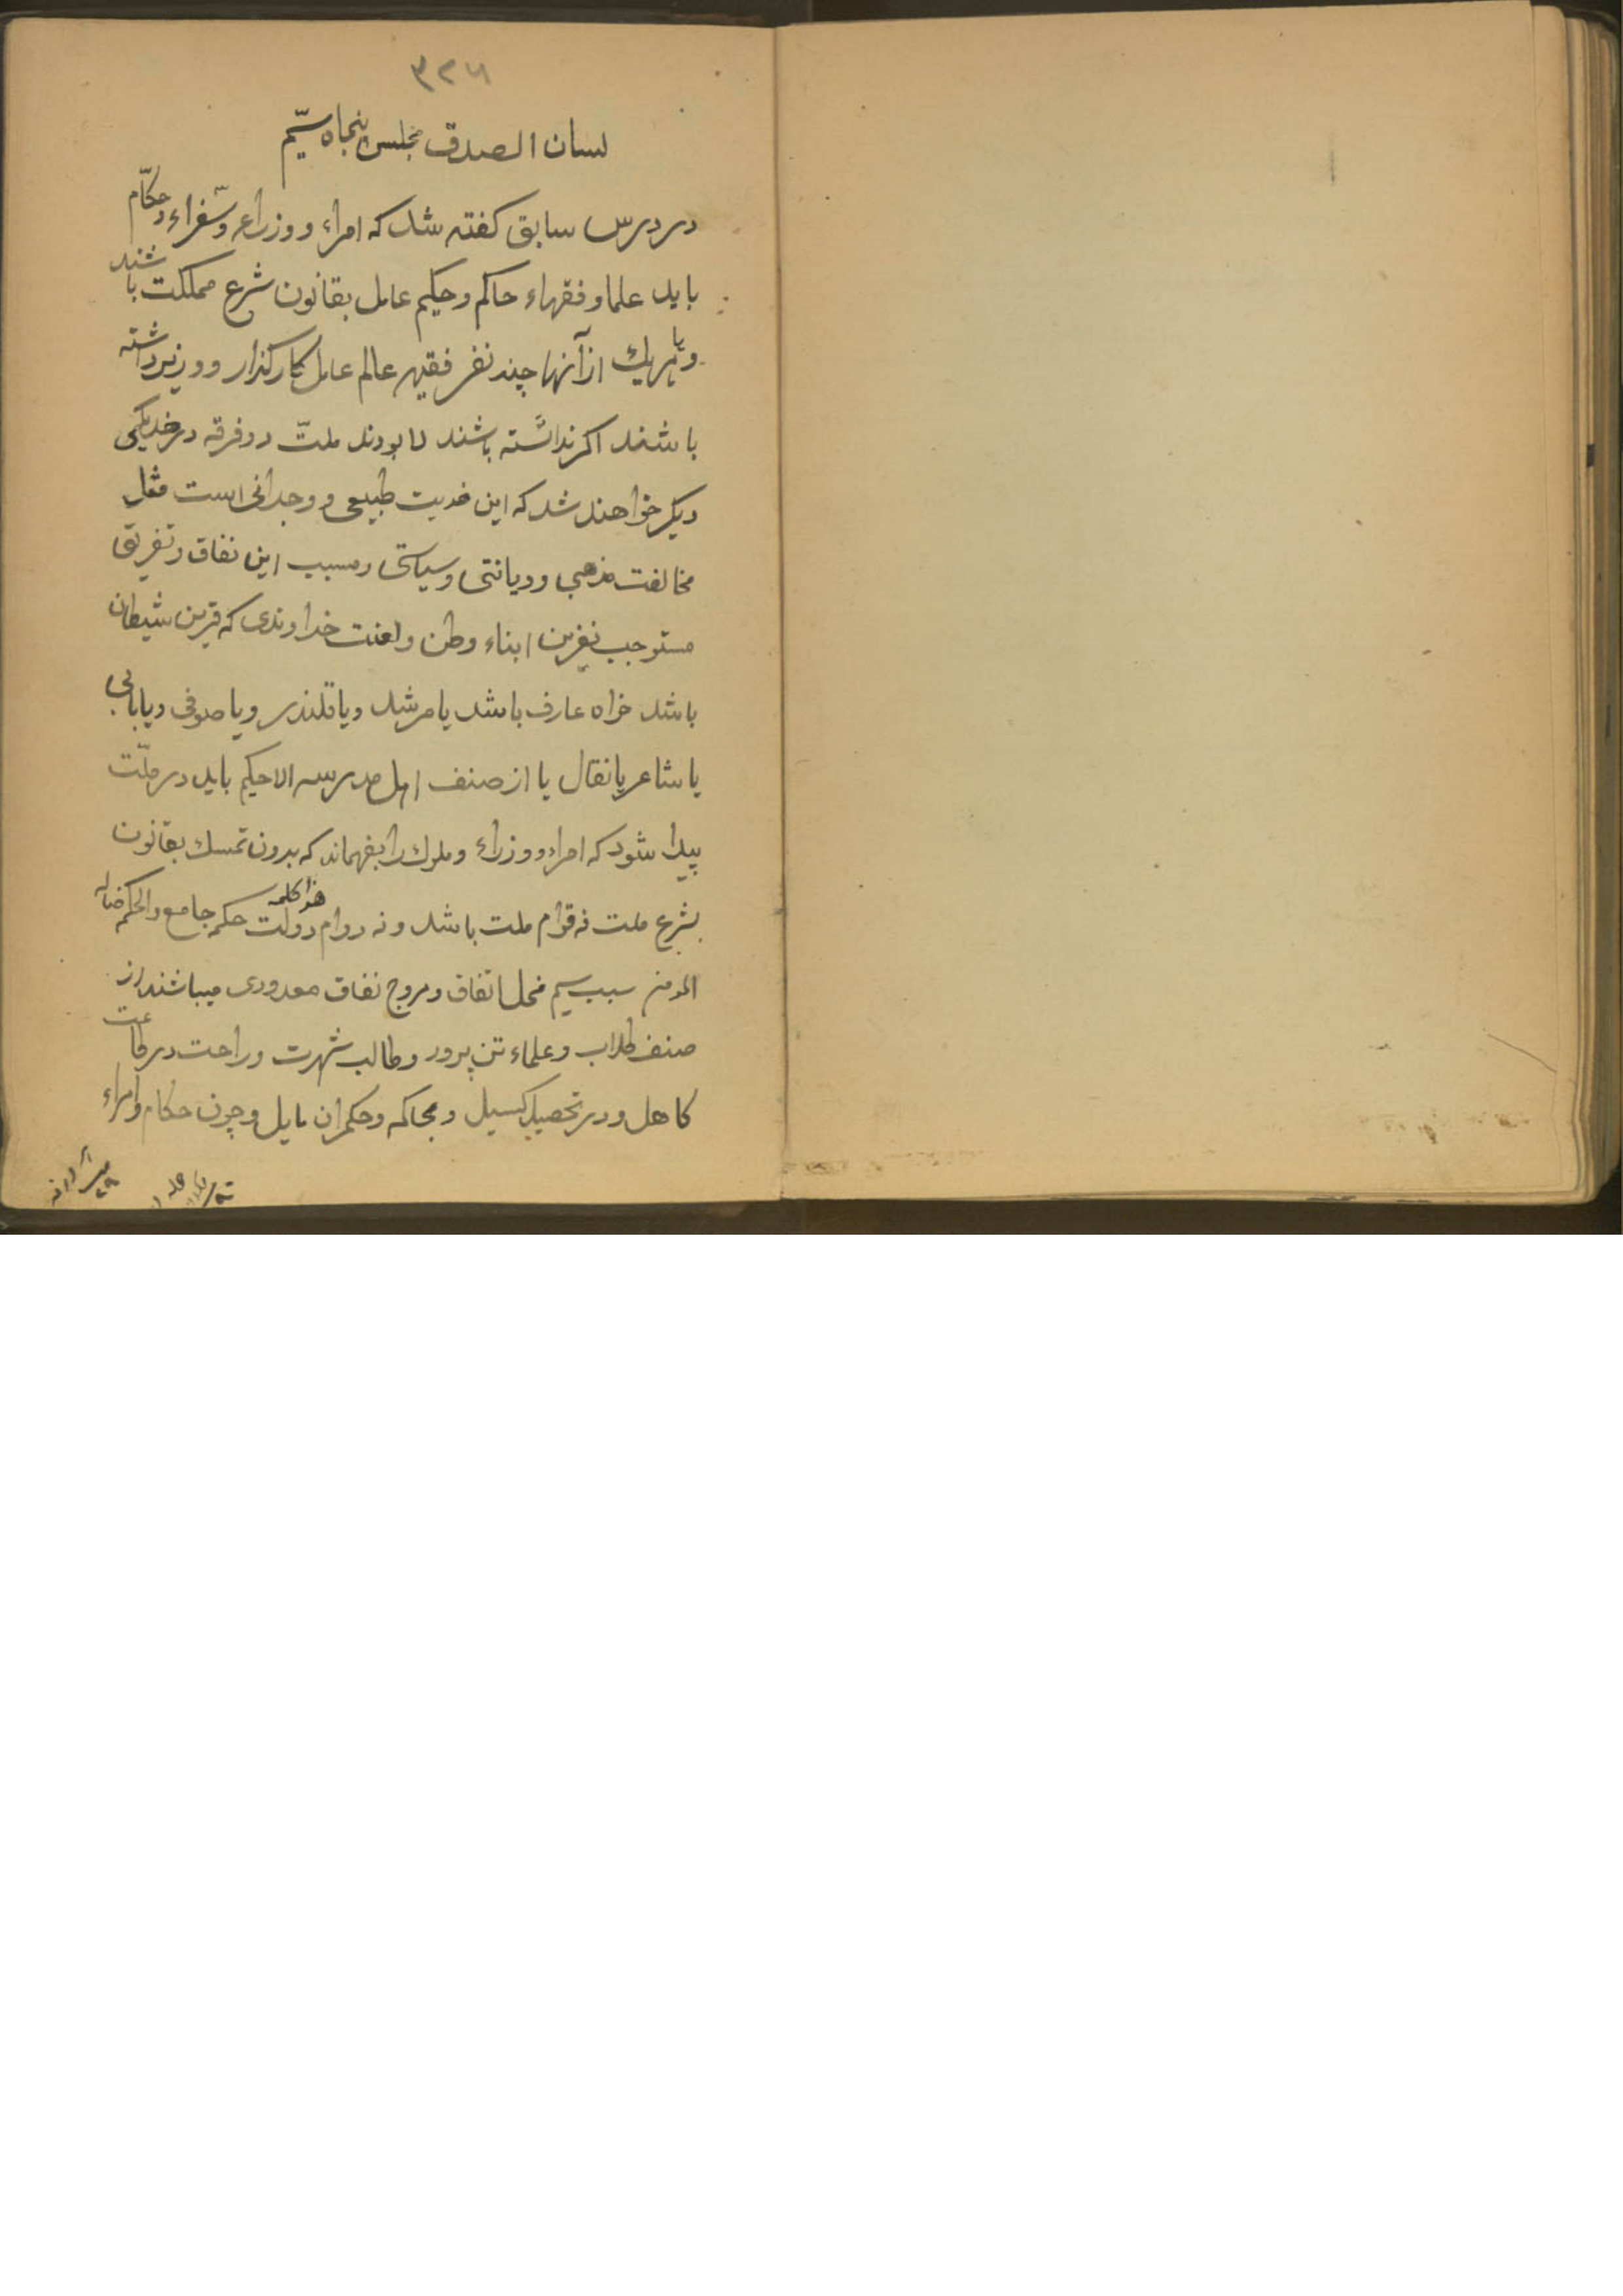 ۳۲۶
لسان الصدق مجلس پنجاه سیّم
در درس سابق کفته شد که امراء و وزراء و سفراء و حکّام
باید علما و فقهاء حاکم و حکیم عامل بقانون شرع مملکت باشند
و یا هریك از آنها چند نفر فقیه عالم عامل کارکذار و وزیر داشته
باشند اکر نداشته باشند لابد وند ملتّ دو فرقه در ضد یکی
دیکر خواهند شد که این ضدیت طبیعی و وجدانی است مثل
مخالفت مذهبی و دیانتی و سیاستی و مسبب این نفاق و تفریق
مستوجب نفرین ابناء وطن و لعنت خداوندی که قرین شیطان
باشد خواه عارف باشد یا مرشد و یا قلندر و یا صوفی و یا بابی
یا شاعر یا نقال یا از صنف اهل مدرسه الا حکیم باید در ملّت
پیدا شود که امراء و وزراء و ملوك را بفهماند که بدون تمسك بقانون
شرع ملت نه قوام ملت باشد و نه دوام دولت هذا کلمه حکمه جامع والحکم ضاله
المومن سبب سیم مخل اتفاق و مروج نفاق معدودی میباشند از
صنف طلاب و علماء تن پرور و طالب شهرت و راحت در طاعت
کاهل و در تحصیل کسیل و بمحاکمه و حکمران مایل و چون حکام و امراء